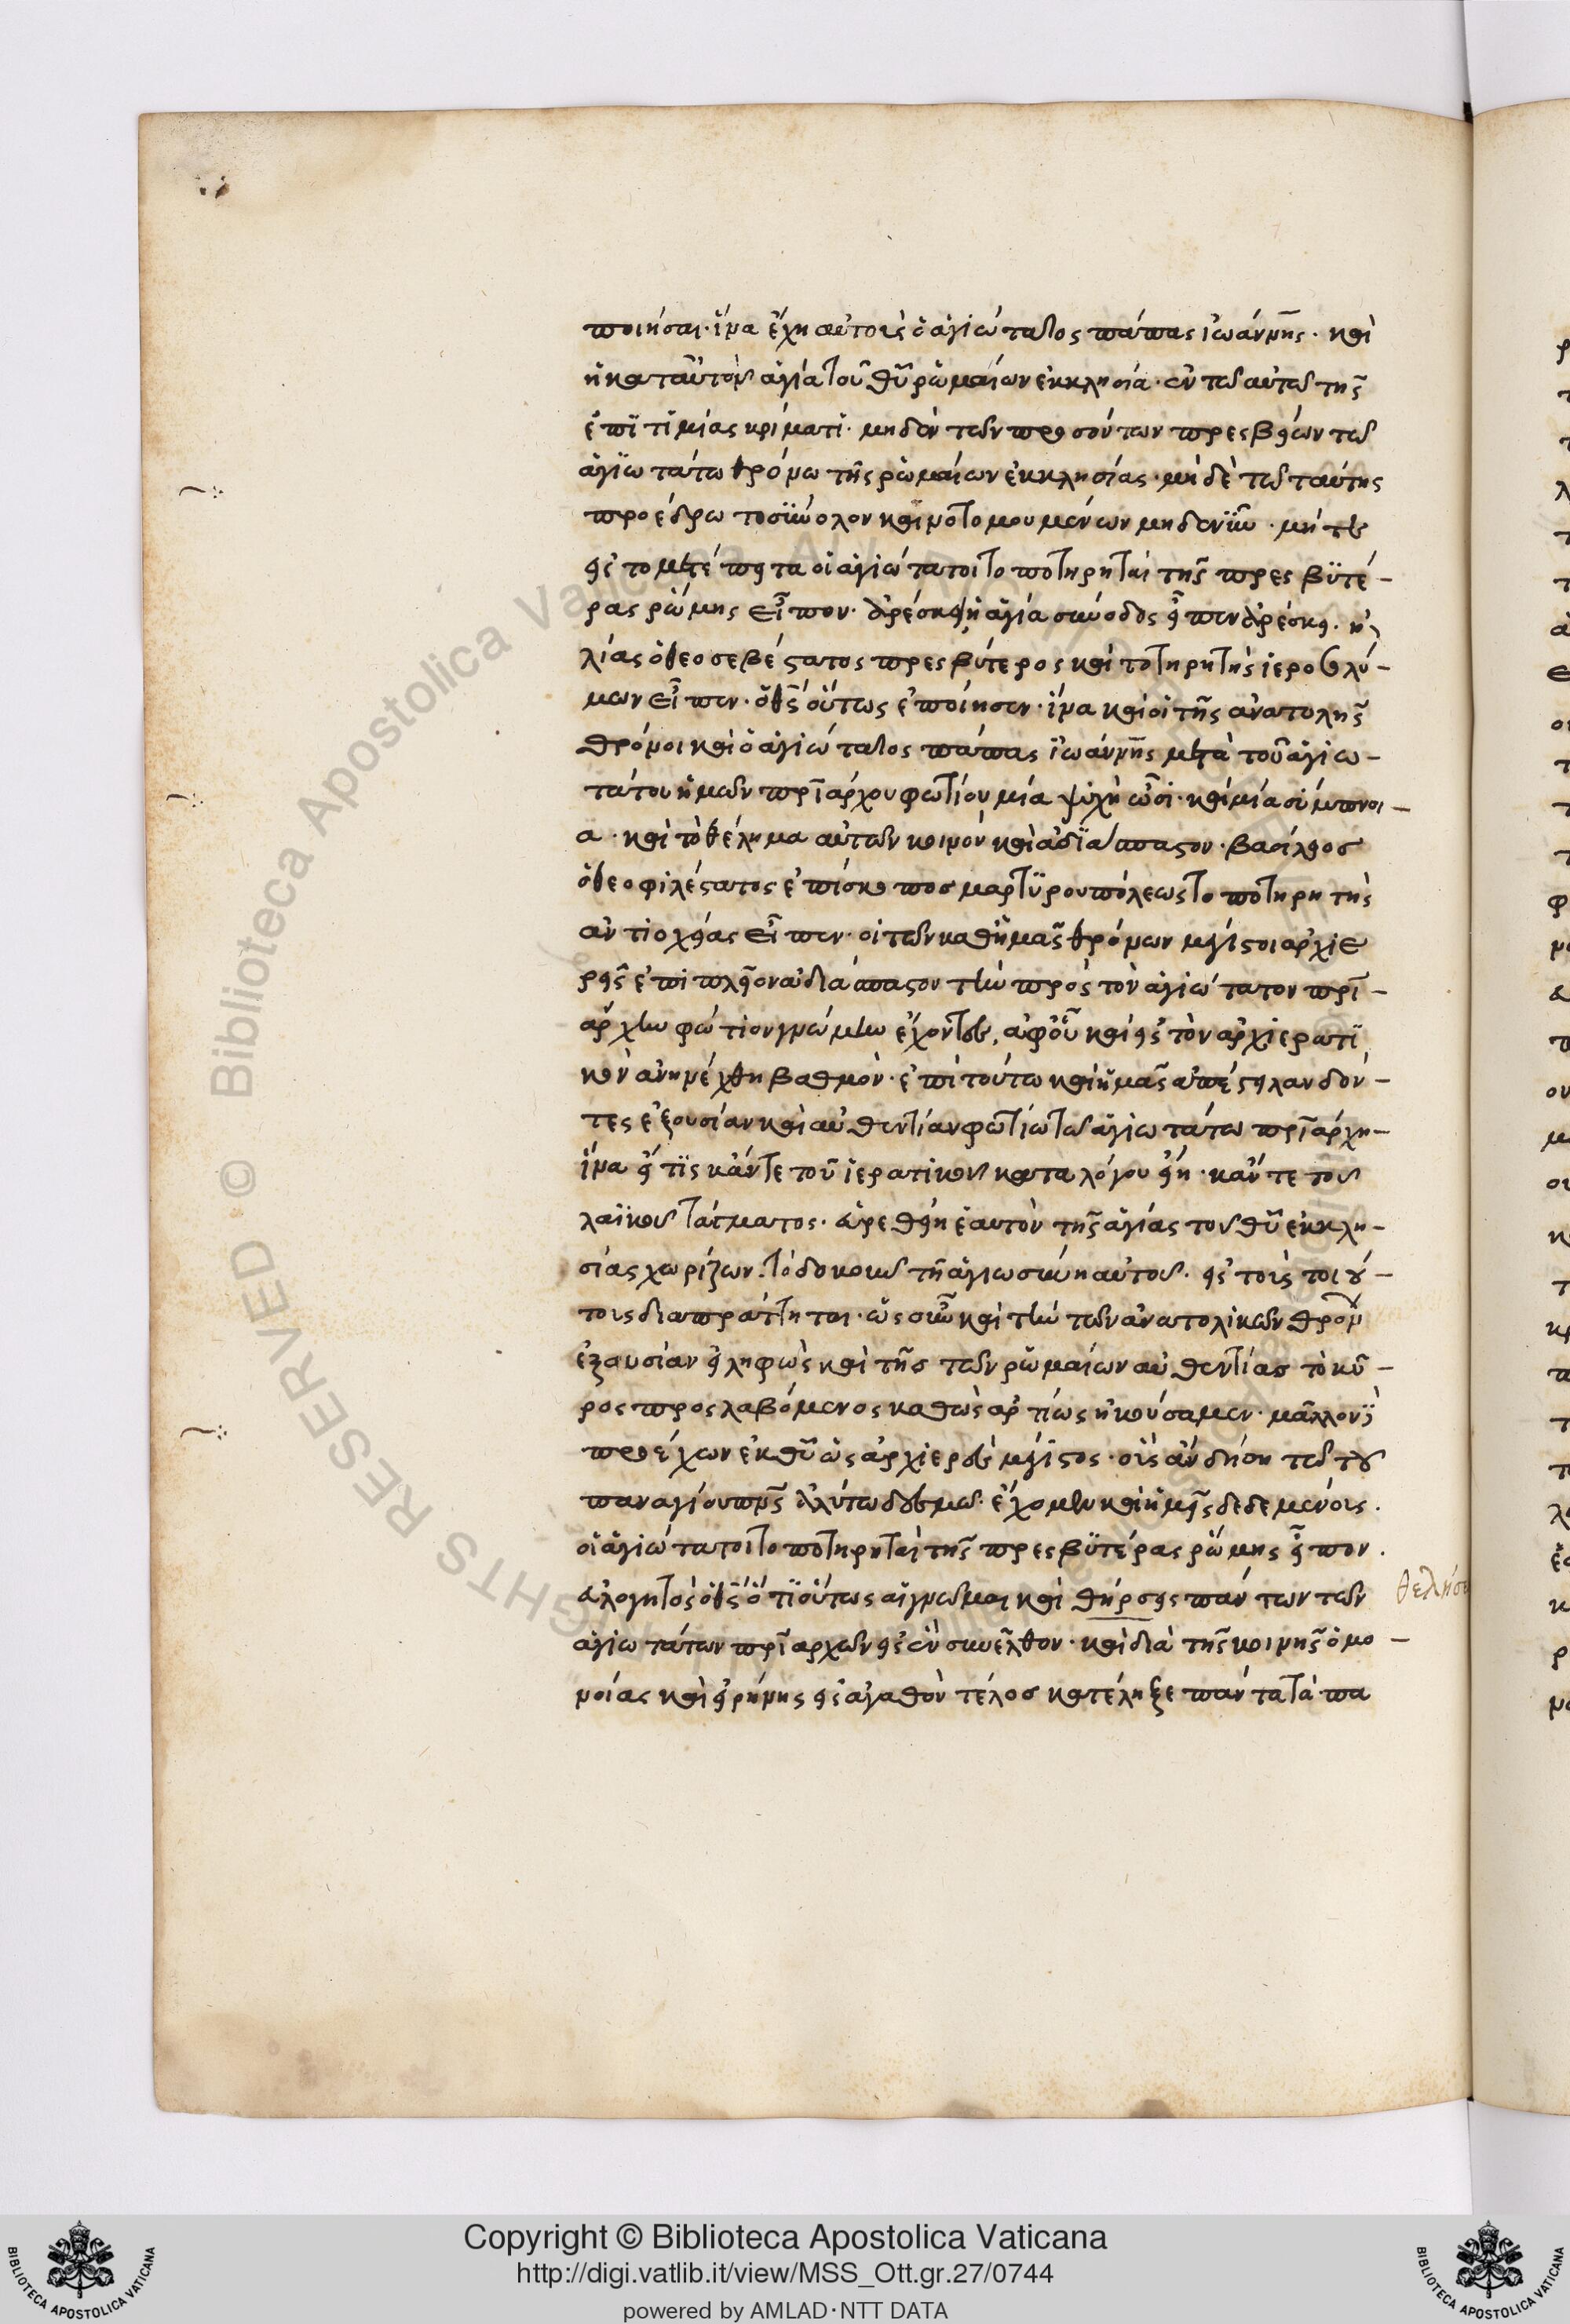 ποιήσαι· ἵνα ἔχη αὐτοὺς ὁ ἁγιώτατος πάπας ἰωάννης· καὶ
ἡ κατ' αὐτὸν ἁγία τοῦ θῦ ῥωμαίων ἐκκλησία· ἐν τῶ αὐτῶ τῆς
ἐπιτιμίας κρίματι· μηδὲν τῶν προσόντων πρεσβείων τῶ
ἁγιωτάτω θρόνω τῆς ῥωμαίων ἐκκλησίας· μὴ δὲ τῶ ταύτης
προέδρω τοσύνολον καινοτομουμένων μηδὲ νῦν· μήτε
εἰς τομετέπειτα οἱ ἁγιώτατοι τοποτηρηταὶ τῆς πρεσβυτέ-
ρας ῥώμης εἶπον· ἀρέσκει ἡ ἁγία σύνοδος εἶπεν ἀρέσκει· ἠ
λίας ὁ θεοσεβέστατος πρεσβύτερος καὶ τοτηρητὴς ἱεροσολύ-
μων εἶπεν· ὁ θς οὕτως ἐποίησεν· ἵνα καὶ οἱ τῆς ἀνατολῆς
θρόνοι καὶ ὁ ἁγιώτατος πάπας ἰωάννης μετὰ τοῦ ἁγιω-
τάτου ἡμῶν πριάρχου φωτίου μία ψυχὴ ὦσι· καὶ μία σύμπνοι-
α· καὶ τὸ θέλημα αὐτῶν κοινὸν καὶ ἀδιάσπαστον· βασίλειος
ὁ θεοφιλέστατος ἐπίσκοπος μαρτυρουπόλεως τοποτηρητὴς
ἀντιοχείας εἶπεν· οἱ τῶν καθ' ἡμᾶς θρόνων μέγιστοι ἀρχιε
ρεῖς ἐπιπλεῖον ἀδιάσπαστον τὴν πρὸς τὸν ἁγιώτατον πρι-
άρχην φώτιον γνώμην ἔχοντες, ἀφ' οὗ καὶ εἰς τὸν ἀρχιερατι
κὸν ἀνηνέχθη βαθμὸν· ἐπὶ τούτω καὶ ἡμᾶς ἀπέστειλαν δόν-
τες ἐξουσίαν καὶ αὐθεντίαν φωτίω τῶ ἁγιωτάτω πριάρχη-
ἵνα εἴ τις κἄντε τοῦ ἱερατικοῦ καταλόγου εἴη· κἄν τε τοῦ
λαϊκοῦ τάγματος· εὑρεθείη ἑαυτὸν τῆς ἁγίας τοῦ θῦ ἐκκλη-
σίας χωρίζων. τὸ δοκοῦν τῆ ἁγιωσύνη αὐτοῦ· εἰς τοὺς τοιού-
τους διαπράττηται· ὡς οὖν καὶ τὴν τῶν ἀνατολικῶν θρόν
ἐξουσίαν εἰληφὼς καὶ τῆς τῶν ῥωμαίων αὐθεντίας τὸ κῦ-
ρος προσλαβόμενος καθὼς ἀρτίως ἠκούσαμεν· μᾶλλον δὲ
προέχων ἐκ θῦ ὡς ἀρχιερεὺς μέγιστος· οὓς ἂν δήση τῶ τοῦ
παναγίου πνς ἀλύτω δεσμῶ· ἔχομεν καὶ ἡμεῖς δεδεμένους.
οἱ ἁγιώτατοι τοποτηρηταὶ τῆς πρεσβυτέρας ῥώμης εἶπον.
εὐλογητὸς ὁ θς ὅτι οὕτως αἱ γνῶμαι καὶ θήρσεις πάντων τῶν
ἁγιωτάτων πριαρχῶν εἰς ἓν συνῆλθον· καὶ διὰ τῆς κοινῆς ὁμο-
νοίας καὶ εἰρήνης εἰς ἀγαθὸν τέλος κατέληξε πάντα τὰ πα
θελήσε